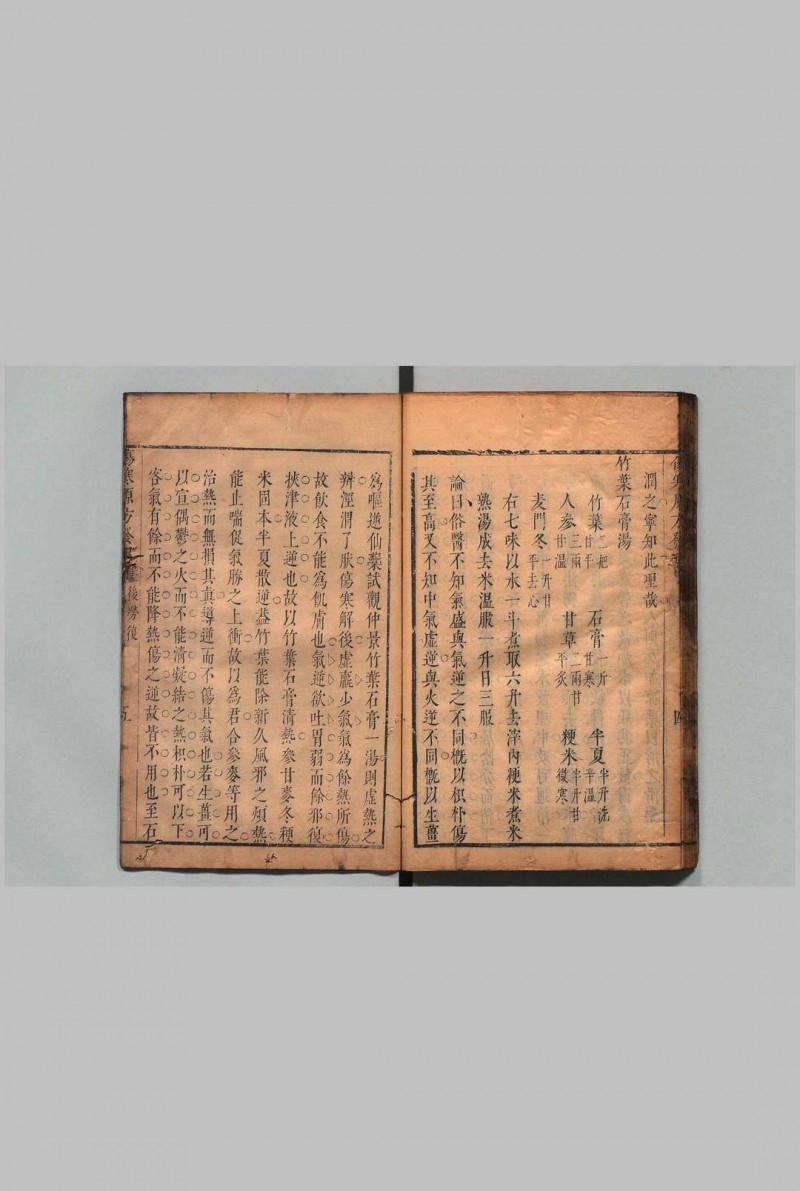 潤之寧知此理哉
竹葉石膏湯
竹葉二把甘平 石膏一斤甘寒 半夏半升洗辛溫
人參三兩甘溫 甘草二兩甘平炙 粳米半升甘微寒
麦門冬一升甘平去心
右七味以水一斗煮取六升去滓內粳米煮米
熟湯成去米溫服一升日三服
論曰俗醫不知氣盛與氣逆之不同槪以枳朴傷
其至高又不知中氣虛逆與火逆不同槪以生薑
爲嘔逆仙藥試觀仲景竹葉石膏一湯則虛熱之
辨涇渭了肰傷寒解後虛羸少氣氣為餘熱所傷
故飲食不能爲飢膚也氣逆欲吐胃弱而餘邪復
挾津液上逆也故以竹葉石膏清熱參甘麥冬粳
米固本半夏散逆葢竹葉能除新久風邪之煩熱
能止喘促氣勝之上衝故以爲君合參麥等用之
治熱而無損其眞導逆而不傷其氣也若生薑可
以宣偶鬱之火而不能清凝結之熱枳朴可以下
客氣有餘而不能降熱傷之逆故皆不用也至石
傷寒原方發 後勞復 五